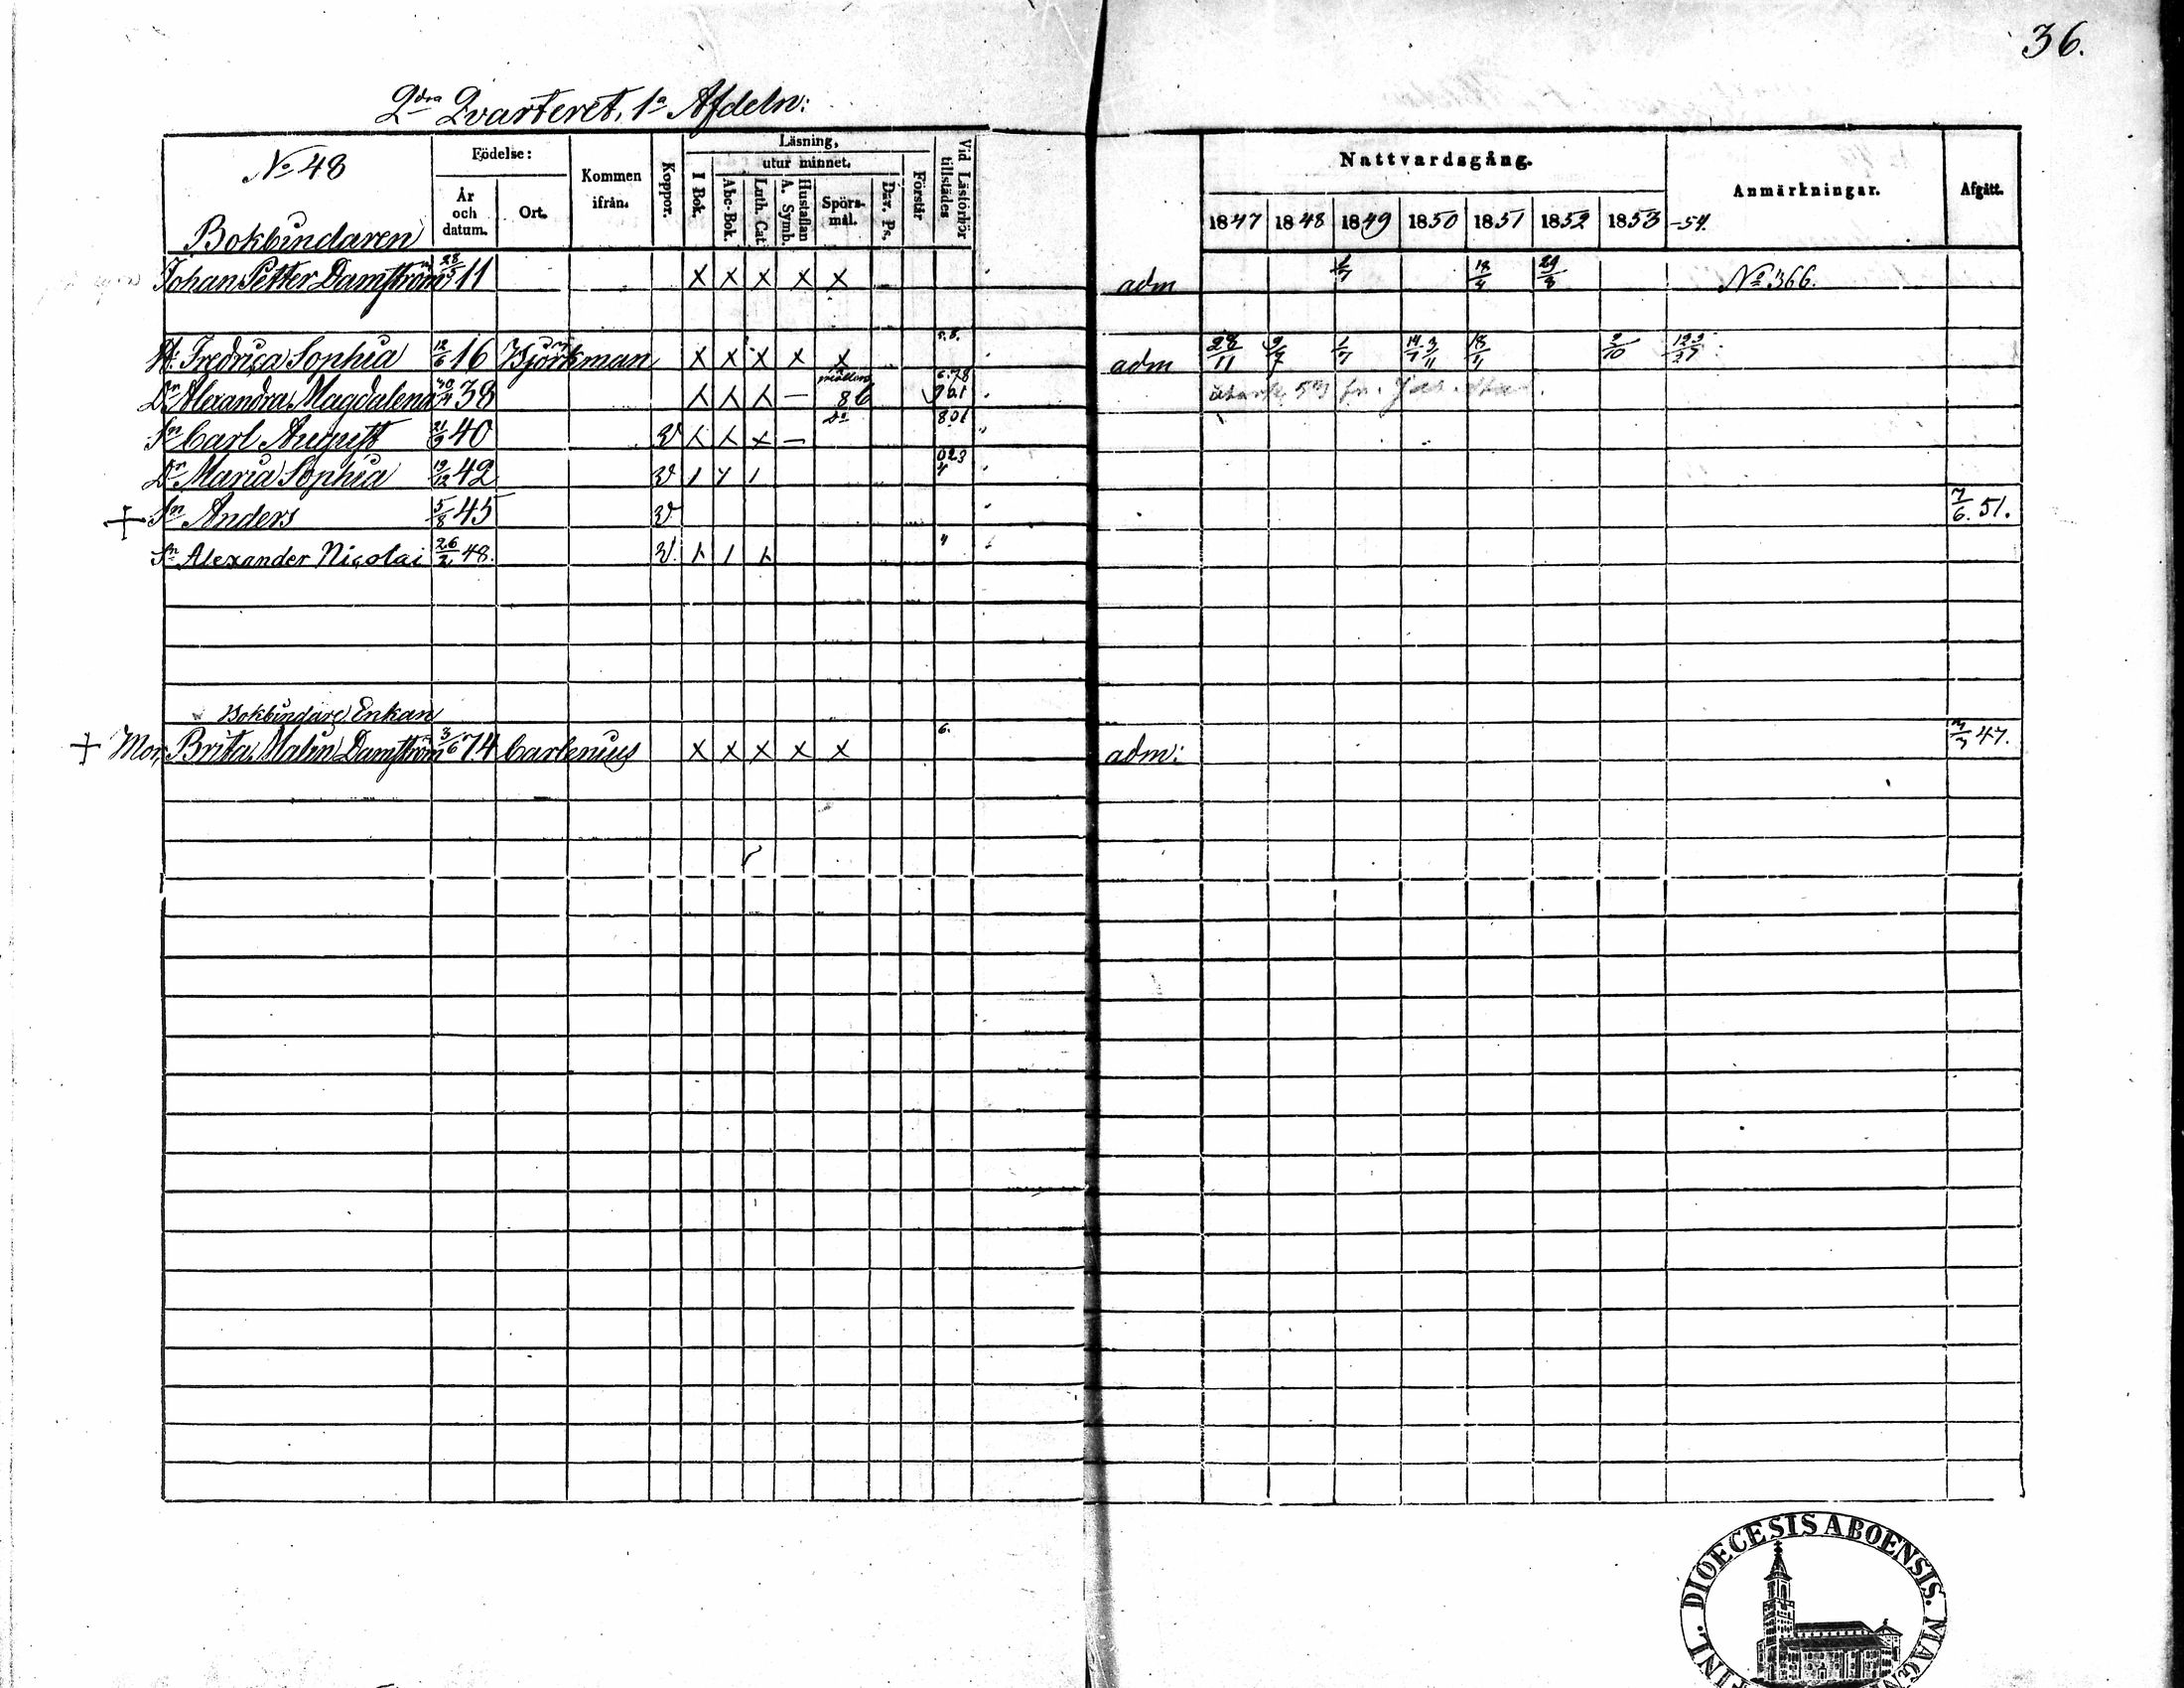 36.
2dra Qvarteret, 1a Afdeln:
No 48
Bokbindaren
Födelse:
År och datum.
Ort.
Kommen ifrån.
Koppor.
Läsning,
utur minnet.
I Bok.
Abc-Bok.
Luth. Cat.
Hustaflan A. Symb.
Spörs-mål.
Dav. Ps.
Förstår
Vid Läsförhör tillstädes
Nattvardsgång.
1847 1848 1849 1850 1851 1852 1853 -54.
Anmärkningar.
Afgått.
Johan Petter Damström 28/5 11 X X X X X adm 1/7 18/4 29/8 No 366.
H: Fredrica Sophia 12/6 16 Björkman X X X X X adm 28/11 9/7 1/7 14/7 3/11 18/4 2/10
Dr Alexandra Magdalena 38 — 86
Sn Carl August 21/9 40 V —
Dr Maria Sophia 19/12 42 V
+ Sn Anders 5/8 45 V 7/6. 51.
Sn Alexander Nicolai 26/2 48. V.
Bokbindare Enkan
+ Mor, Brita Malin Damström 3/6 74 Carlenius X X X X X 6. adm: 47.
FINL. DIOECESIS ABOENSIS. MAGN